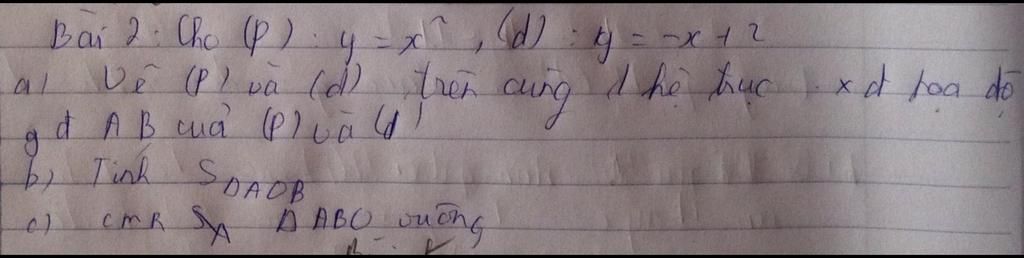 Bài 2: Cho (P): y = x², (d): y = -x + 2
a) Vẽ (P) và (d) trên cùng 1 hệ trục. xđ tọa độ
gđ A B của (P) và (d)
b) Tính SΔAOB
c) CMR Δ ABO vuông